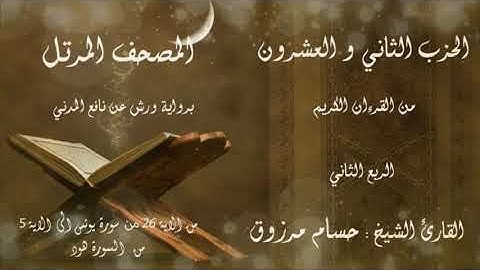 الحزب الثاني و العشرون
من القرءان الكريم
الربع الثاني
القارئ الشيخ : حسام مرزوق
المصحف المرتل
برواية ورش عن نافع المدني
من الاية 26 من سورة يونس الى الاية 5
من السورة هود